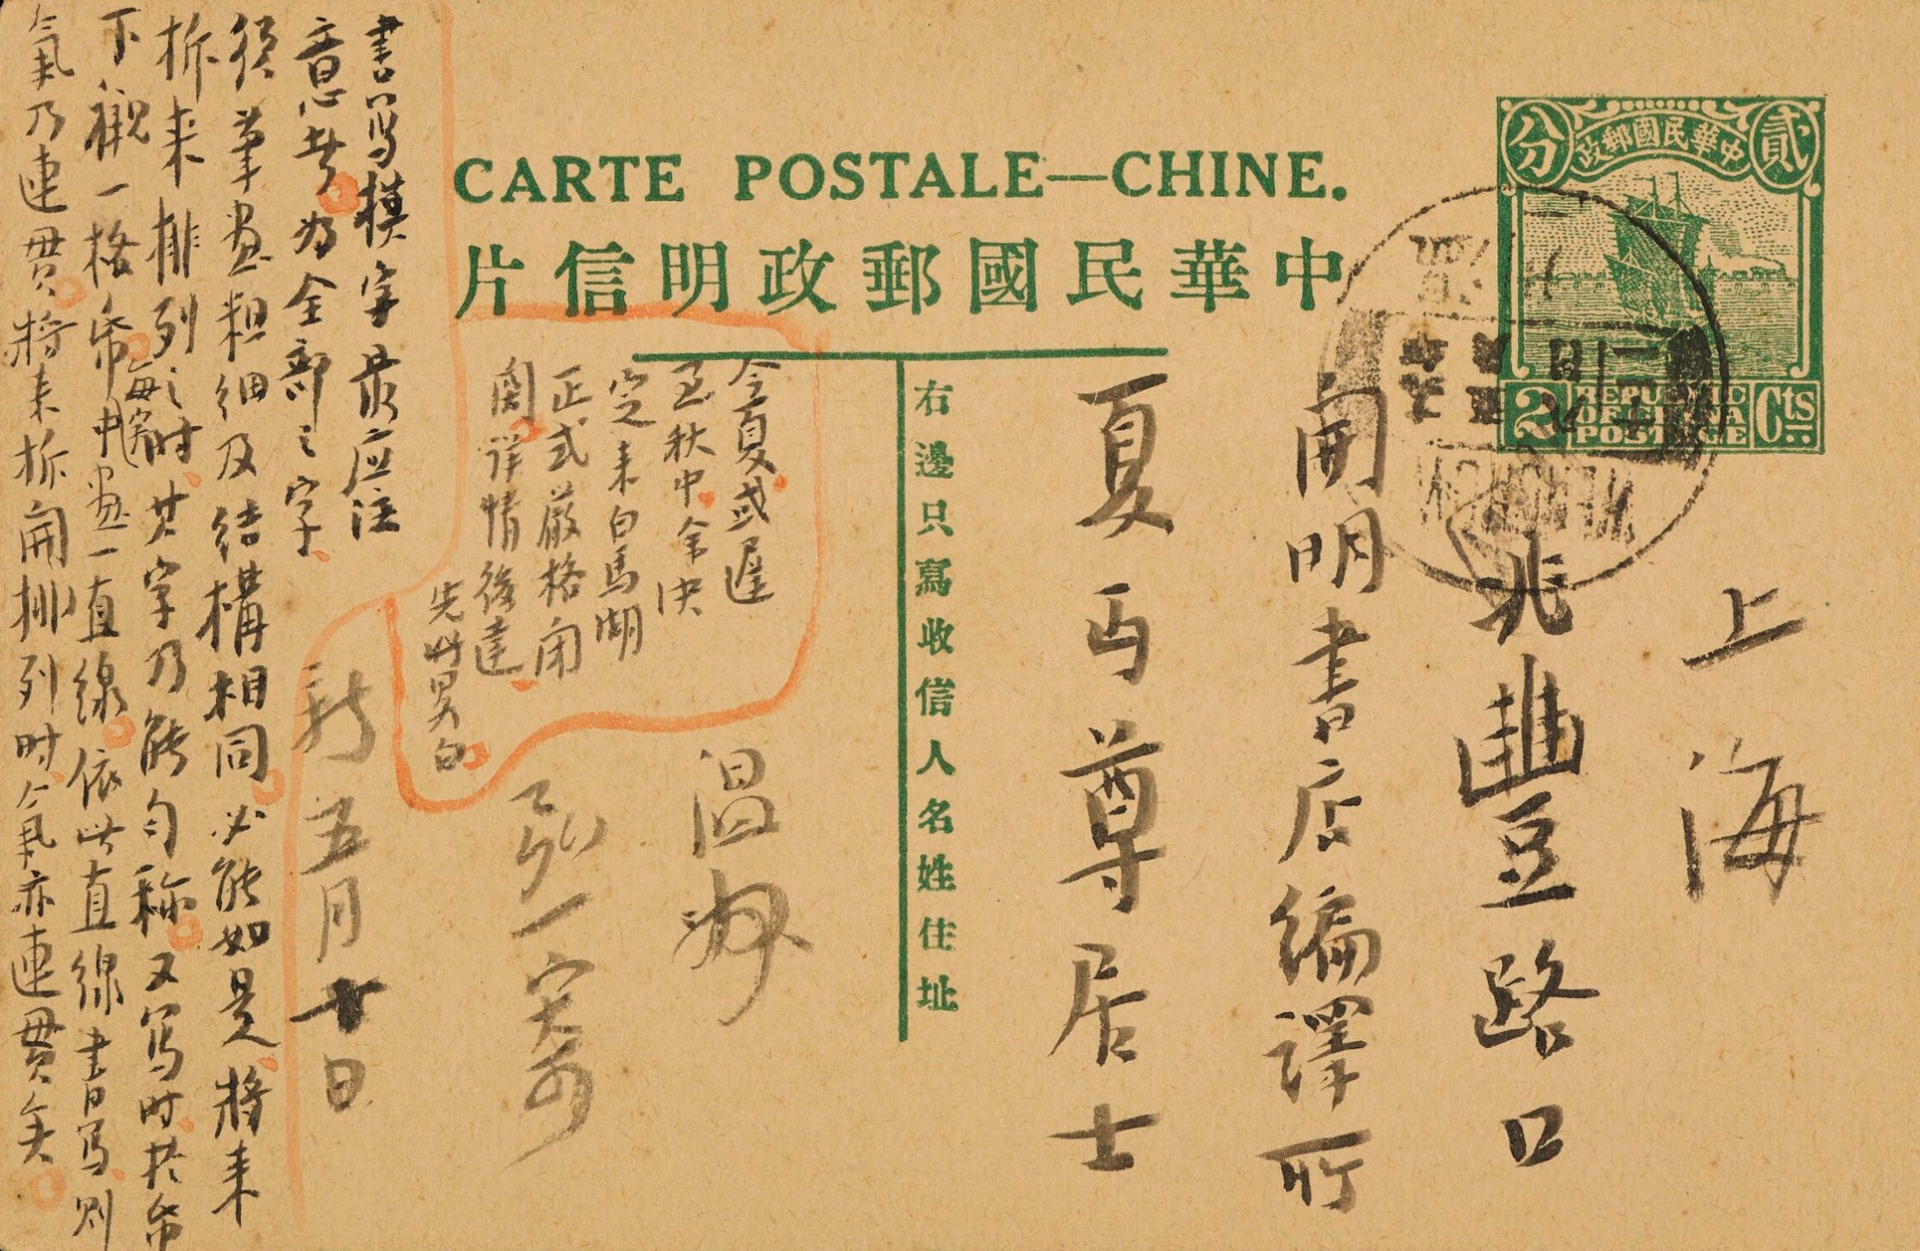 CARTE POSTALE—CHINE.
中華民國郵政明信片
中華民國郵政
貳
分
2
Cts
REPUBLIC
OF CHINA
POSTAGE
上海
北豐路口
開明書店編譯所
夏丏尊居士
右邊只寫收信人名姓住址
温州
弘一寄
新五月廿日
今夏或遲
至秋中余決
定来白馬湖
正式嚴格閉
関詳情後達
先此異白
書寫模字最应注
意者为全部之字
須筆畫粗细及结構相同必能如是将来
拆来排列之时其字乃能匀称又写时於帋
下襯一格帋每格中畫一直線依此直線書写则
氣乃連貫将来拆開排列时氣亦連貫矣